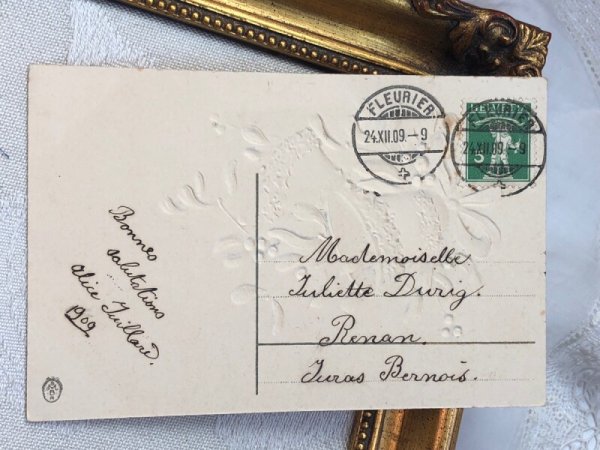 FLEURIER
24.XII.09.-9
FLEURIER
24.XII.09.-9
5
Bonnes
salutations
Alice Juillard.
1909
Mademoiselle
Juliette Durig.
Renan.
Juras Bernois.